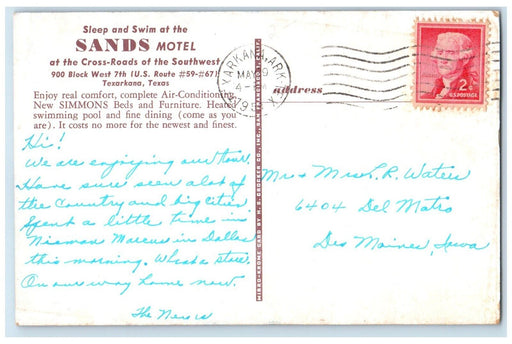 Sleep and Swim at the
SANDS MOTEL
at the Cross-Roads of the Southwest
900 Block West 7th (U.S. Route #59-#67)
Texarkana, Texas
Enjoy real comfort, complete Air-Conditioning,
New SIMMONS Beds and Furniture. Heated
swimming pool and fine dining (come as you
are). It costs no more for the newest and finest.
Hi!
We are enjoying our tour.
Have sure seen a lot of
the country and big cities.
Spent a little time in
Nieman Marcus in Dallas
this morning. What a store.
On our way home now.
The
MIRRO-KROME CARD BY H. S. CROCKER CO., INC.
TEXARKANA, ARK.
MAY
address
2¢
U.S. POSTAGE
Mr & Mrs L. R. Waters
6404 Del Matro
Des Moines, Iowa